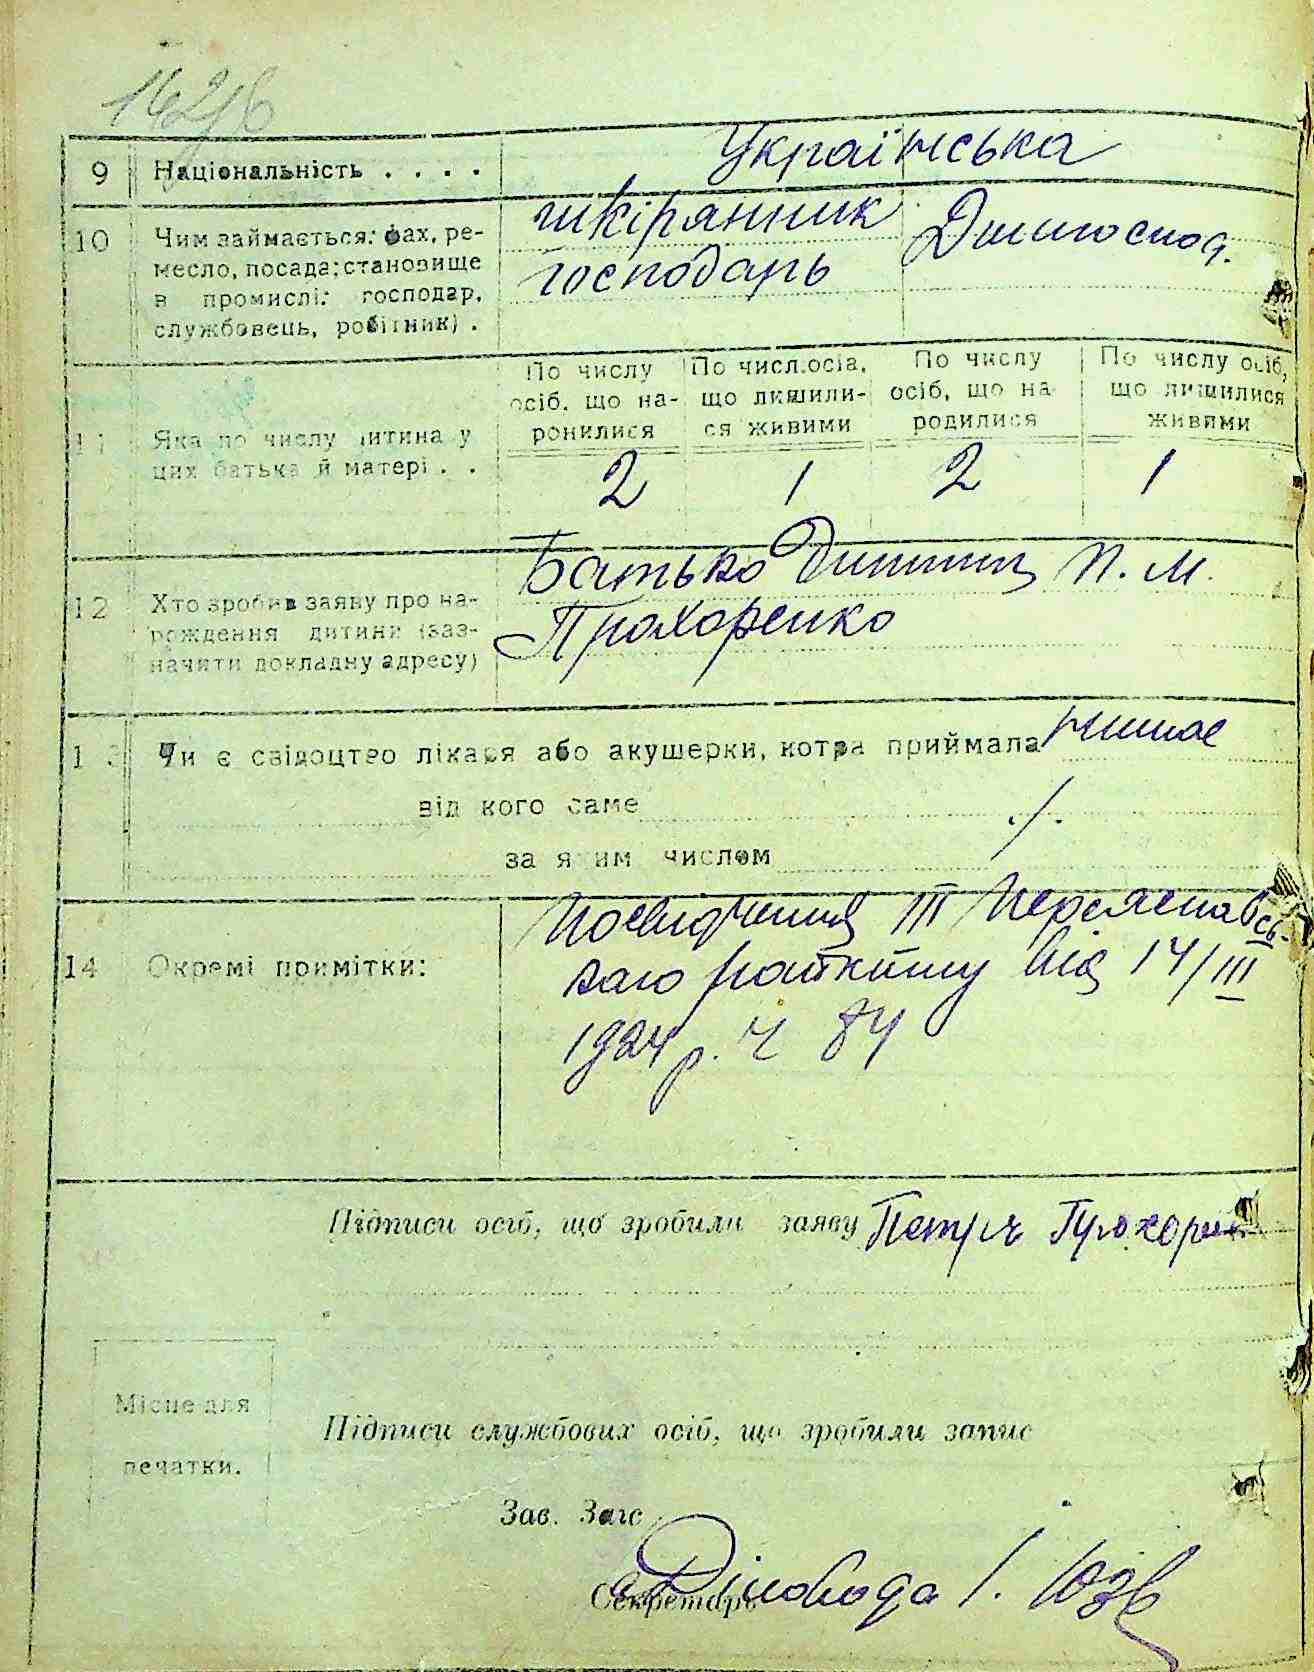 142/б
9 Національність . . . . Українська
10 Чим займається: фах, ре-
месло, посада; становище
в промислі: господар,
службовець, робітник) .
шкірянник
господарь
Домогоспод.
11 Яка по числу дитина у
цих батька й матері . .
По числу
осіб, що на-
ронилися
По числ.осіа,
що лишили-
ся живими
По числу
осіб, що на-
родилися
По числу осіб,
що лишилися
живими
2 1 2 1
12 Хто зробив заяву про на-
рождення дитини (заз-
начити докладну адресу)
Батько дитини П. М.
Прохоренко
13 Чи є свідоцтво лікаря або акушерки, котра приймала немає
від кого саме
за яким числом
14 Окремі примітки:
Посвідчення III Переяславсь-
кого райкому від 14/III
1924 р. Ч 84
Підписи осіб, що зробили заяву Петръ Прохорен
Місце для
печатки.
Підписи службових осіб, що зробили запис
Зав. Загс
Секретарь